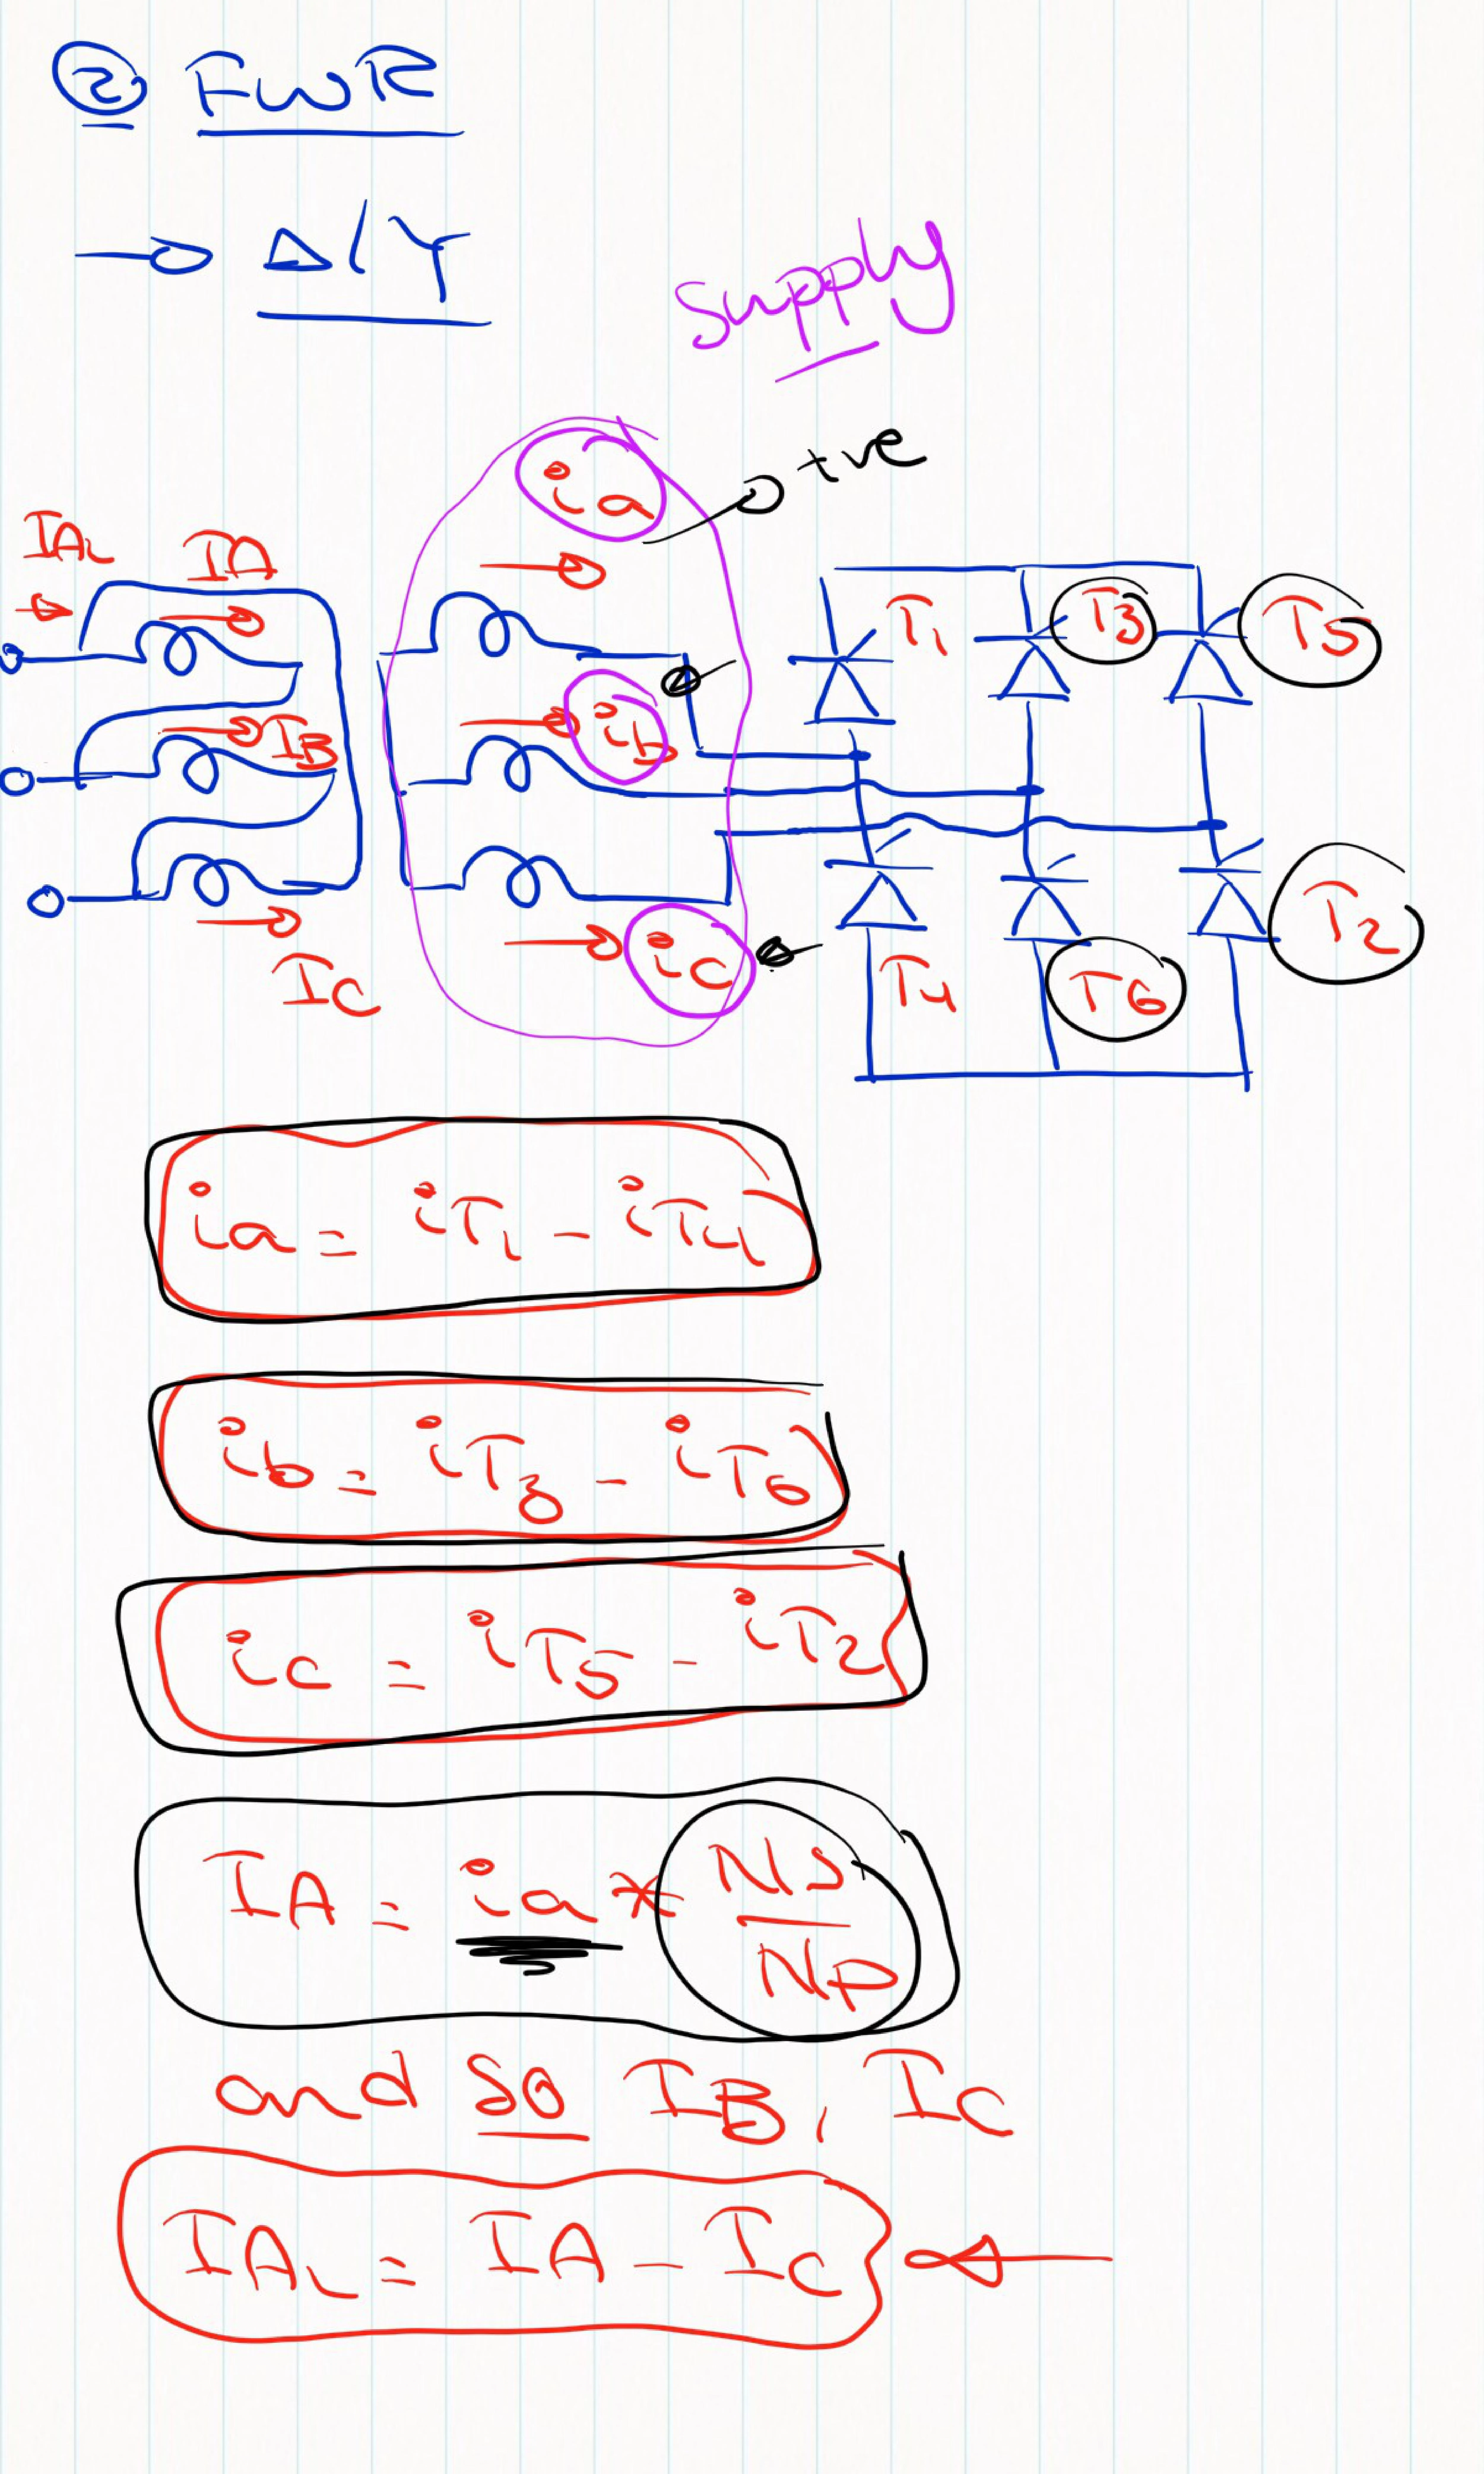 ② FWR
→ Δ/Y
supply
ia
+ve
IAL
IA
T1
T3
T5
ib
IB
T2
ic
IC
T4
T6
ia = iT1 - iT4
ib = iT3 - iT6
ic = iT5 - iT2
IA = ia * Ns/Np
and so IB, IC
IAL = IA - IC